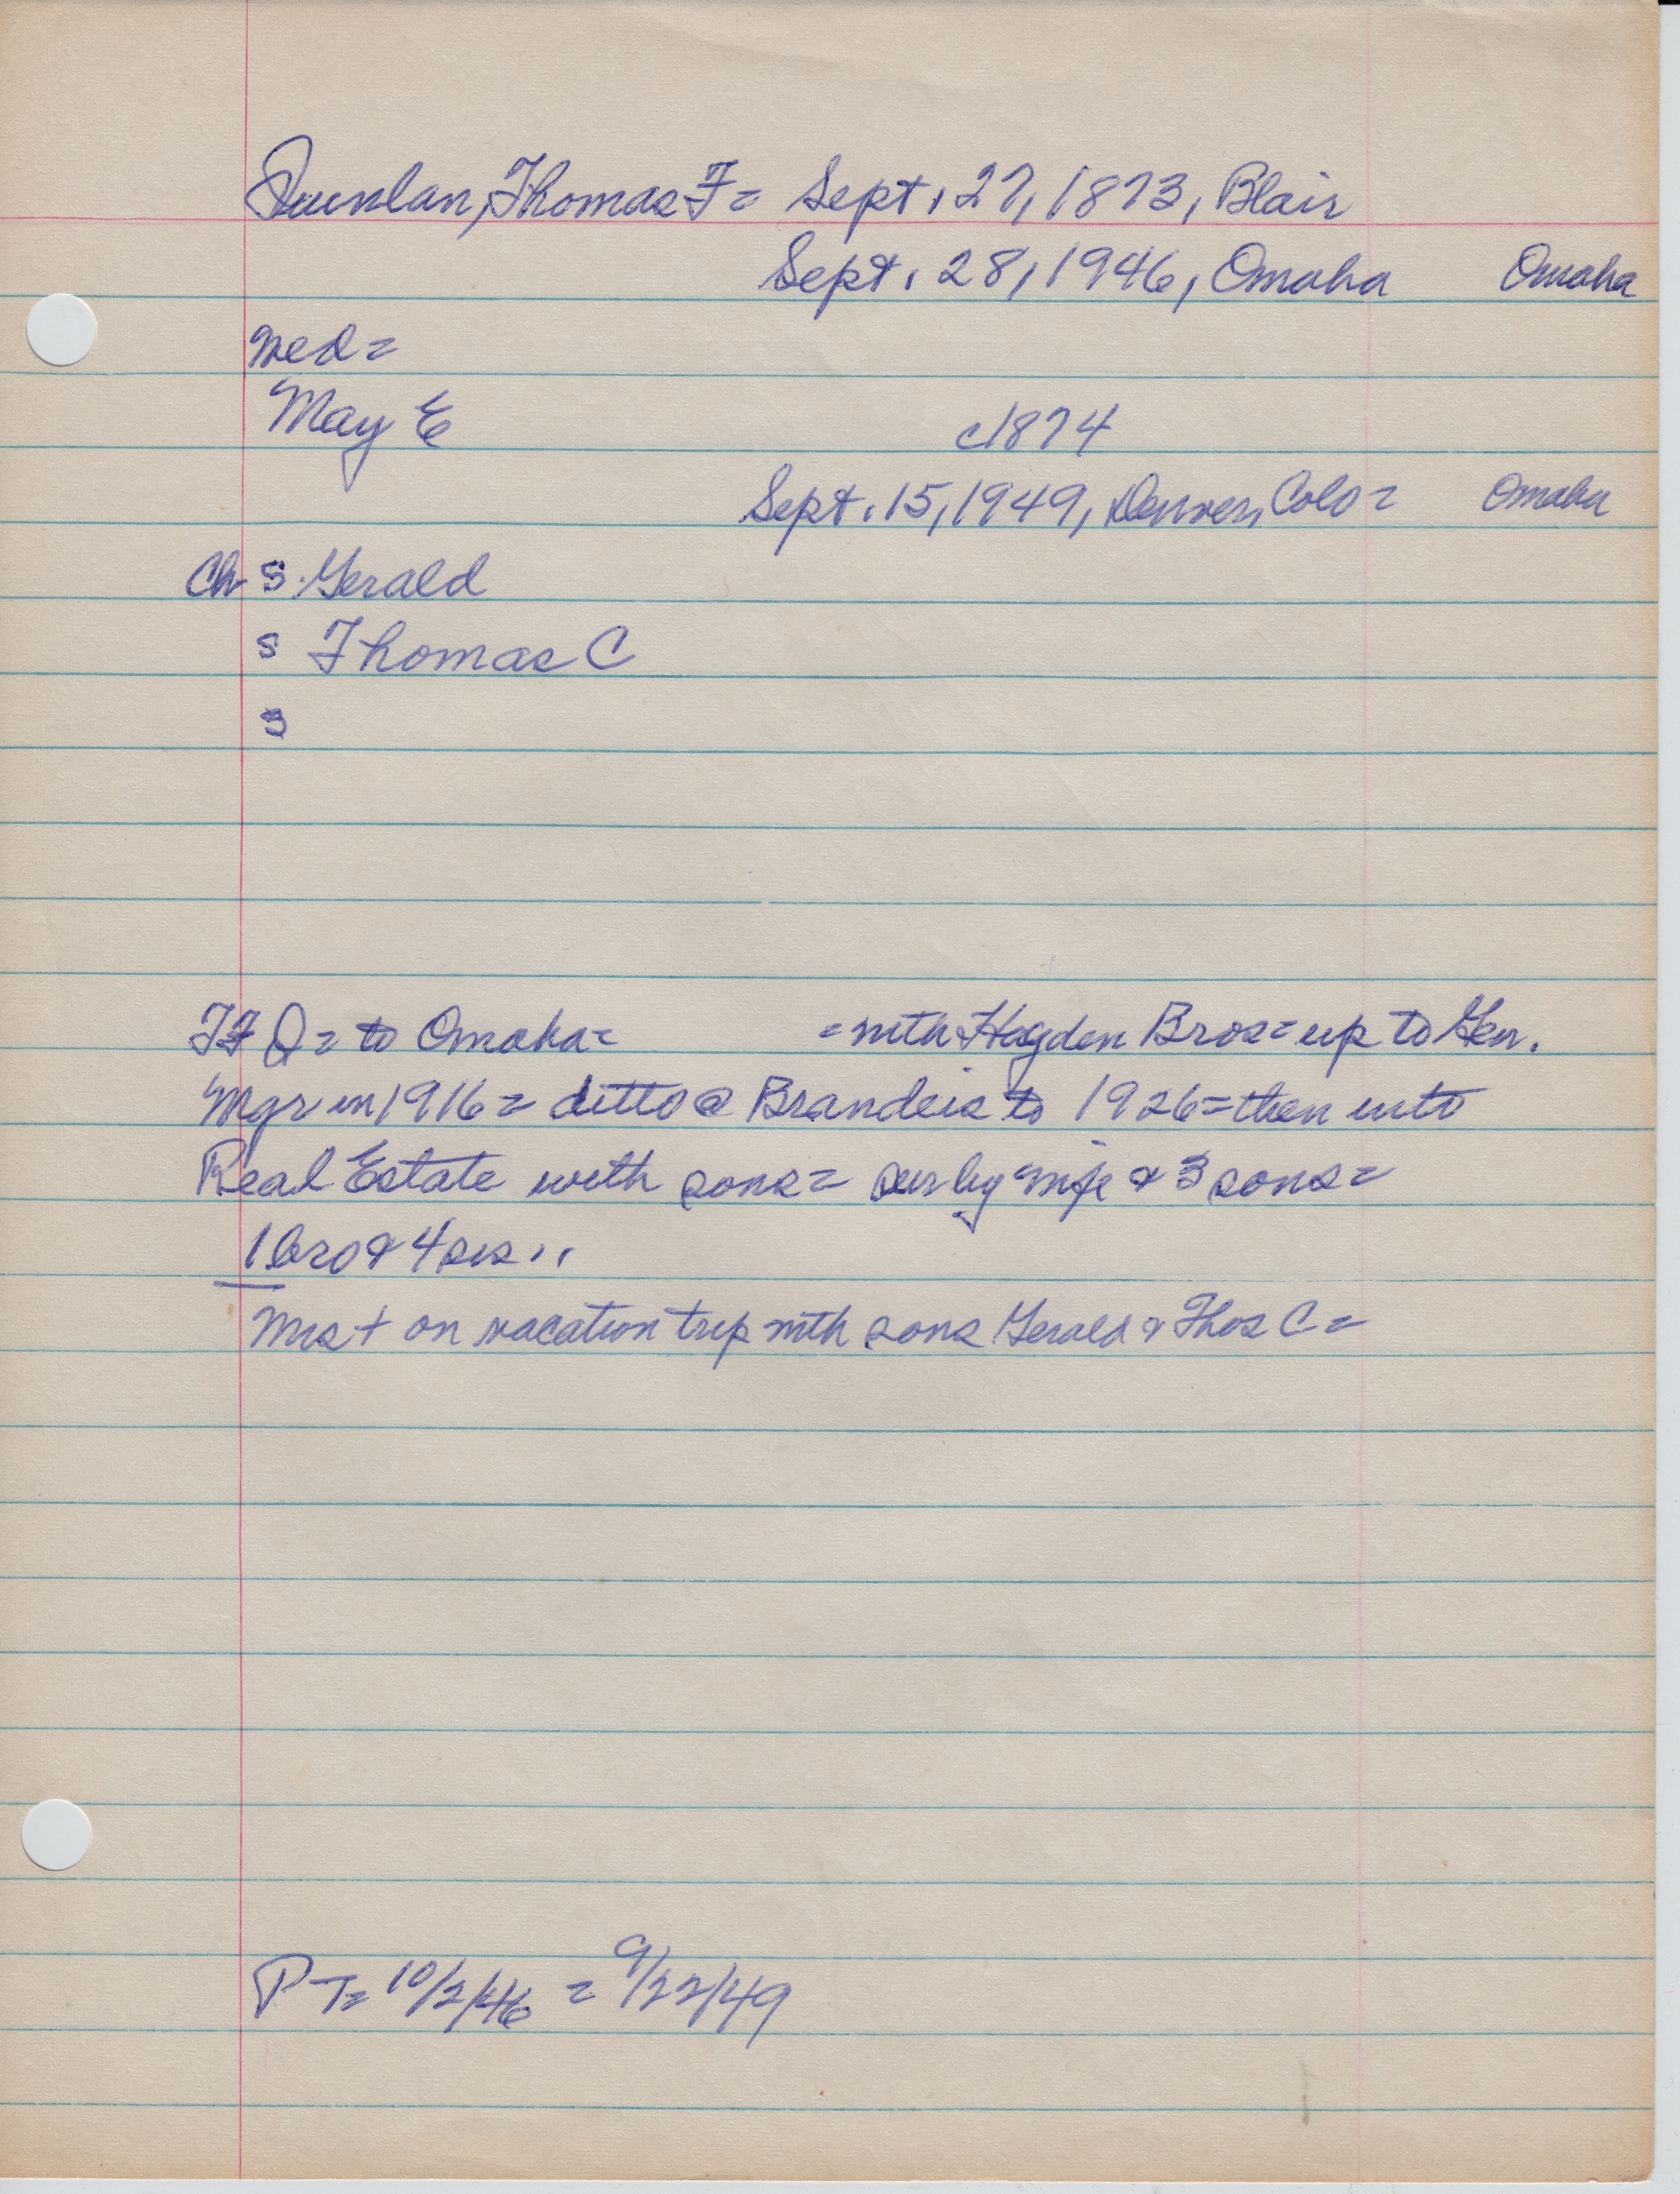 Quinlan, Thomas F = Sept. 27, 1873, Blair
Sept. 28, 1946, Omaha Omaha
wed =
May E c1874
Sept. 15, 1949, Denver, Colo = Omaha
Ch s Gerald
s Thomas C
s
TF Q = to Omaha = = with Hayden Bros = up to Gen.
Mgr in 1916 = ditto @ Brandeis to 1926 = then into
Real Estate with sons = sur by wife & 3 sons =
1 bro & 4 sis ..
Mrs + on vacation trip with sons Gerald & Thos C =
PT = 10/2/46 = 9/22/49